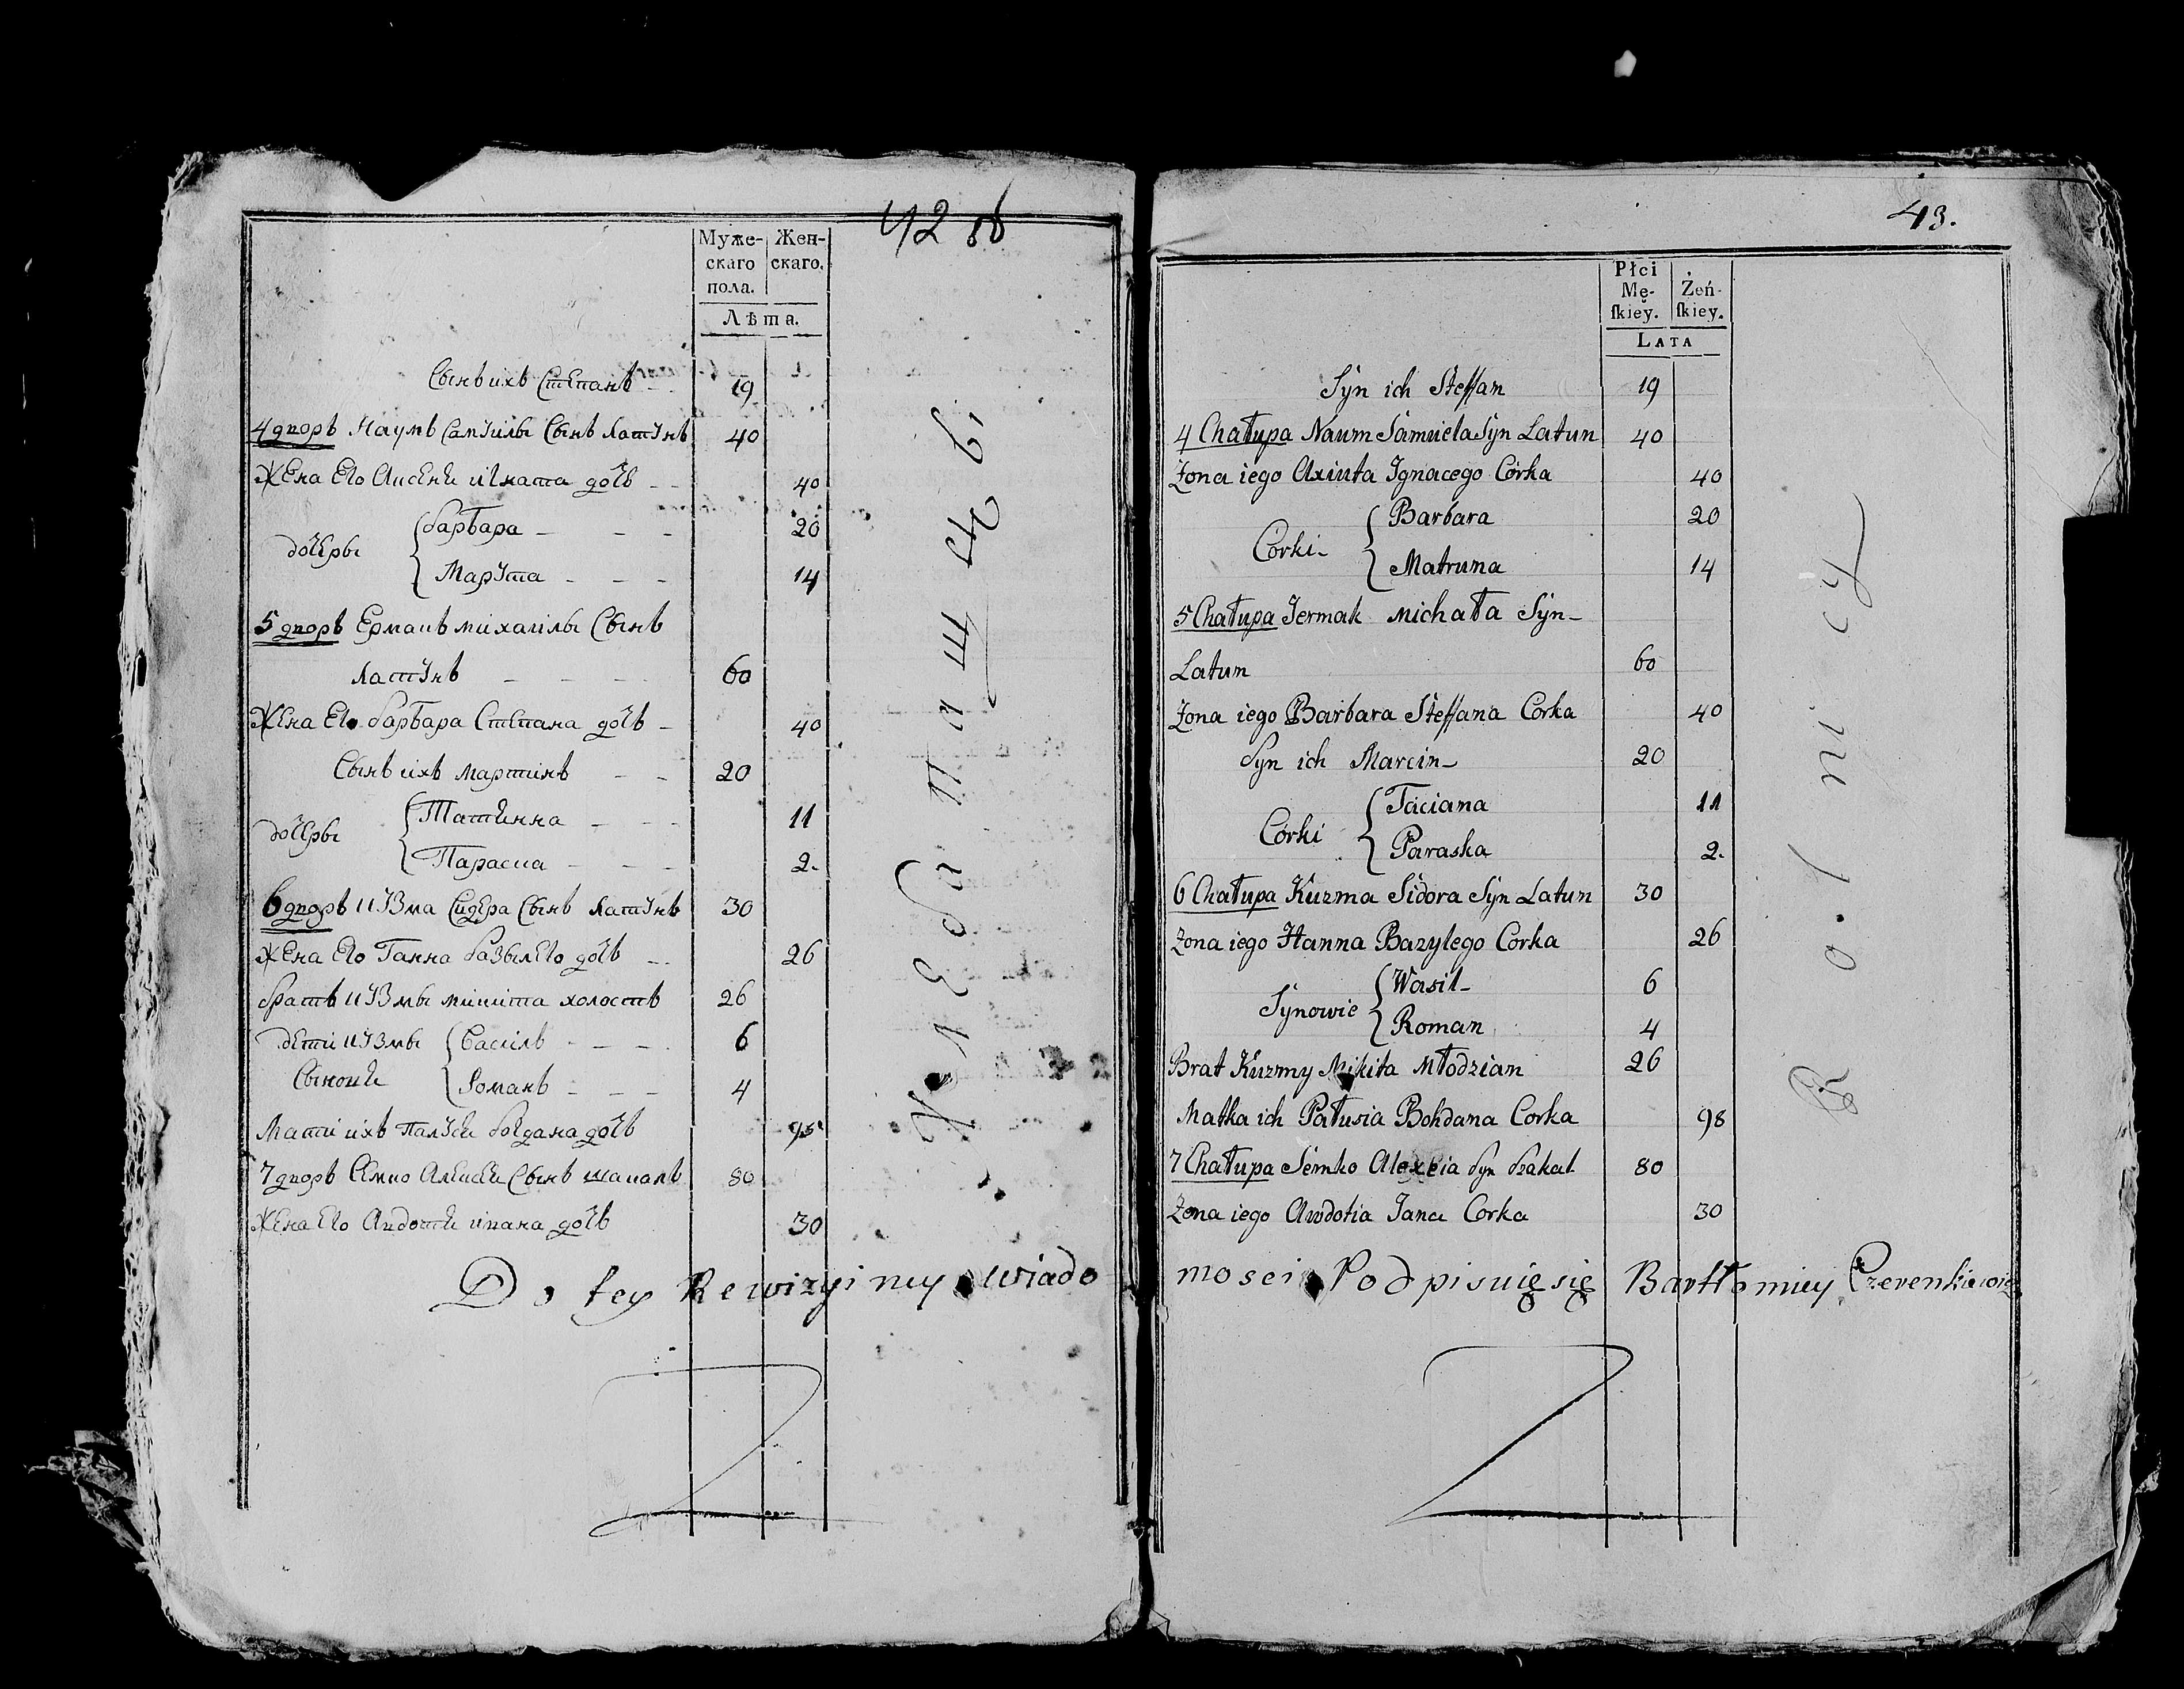 42 об
Муже-
скаго
пола.
Жен-
скаго.
Лѣта.
Сынъ ихъ Степанъ 19
4 дворъ Наумъ Самуилы Сынъ Латунъ 40
Жена Его Аксеня игната дочъ 40
дочеры
Барбара 20
Марута 14
5 дворъ Ермакъ михаилы Сынъ
Латунъ 60
Жена Его барбара Степана дочъ 40
Сынъ ихъ мартинъ 20
дочеры
Татянна 11
Параска 2.
6 дворъ кузма Сидера Сынъ Латунъ 30
Жена Его Ганна базылего дочъ 26
братъ кузмы микита холостъ 26
дети кузмы
Сыновя
Василь 6
Романъ 4
Мати ихъ Палуся богдана дочъ 95
7 дворъ Семко Алексея Сынъ шакалъ 80
Жена Его Авдотя ивана дочъ 30
Хлебопашцы
43.
Płci
Mę-
skiey.
Żeń-
skiey.
LATA
Syn ich Steffan 19
4 Chałupa Naum Samuela Syn Latun 40
Zona iego Axinta Ignacego Córka 40
Corki
Barbara 20
Matruna 14
5 Chałupa Jermak Michała Syn
Latun 60
Zona iego Barbara Steffana Corka 40
Syn ich Marcin 20
Córki
Taciana 11
Paraska 2.
6 Chałupa Kuzma Sidora Syn Latun 30
Zona iego Hanna Bazylego Corka 26
Synowie
Wasil 6
Roman 4
Brat Kuzmy Mikita Młodzian 26
Matka ich Pałusia Bohdana Corka 98
7 Chałupa Semko Alexeia Syn Szakal 80
Zona iego Awdotia Jana Corka 30
Rolnicy
Do tey Rewizyi mey wiadomosci Podpisuię się Bartłomiey Czerenkiewicz